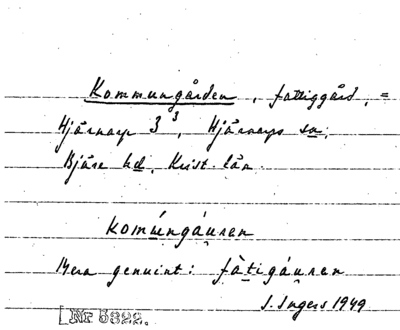 Kommungården, fattiggård, =
Hjärnarp 3³, Hjärnarps sn,
Bjäre hd, Krist. län.
komúngáụren
Mera genuint: fàtigáụren
I. Ingers 1949
Nr 5322.